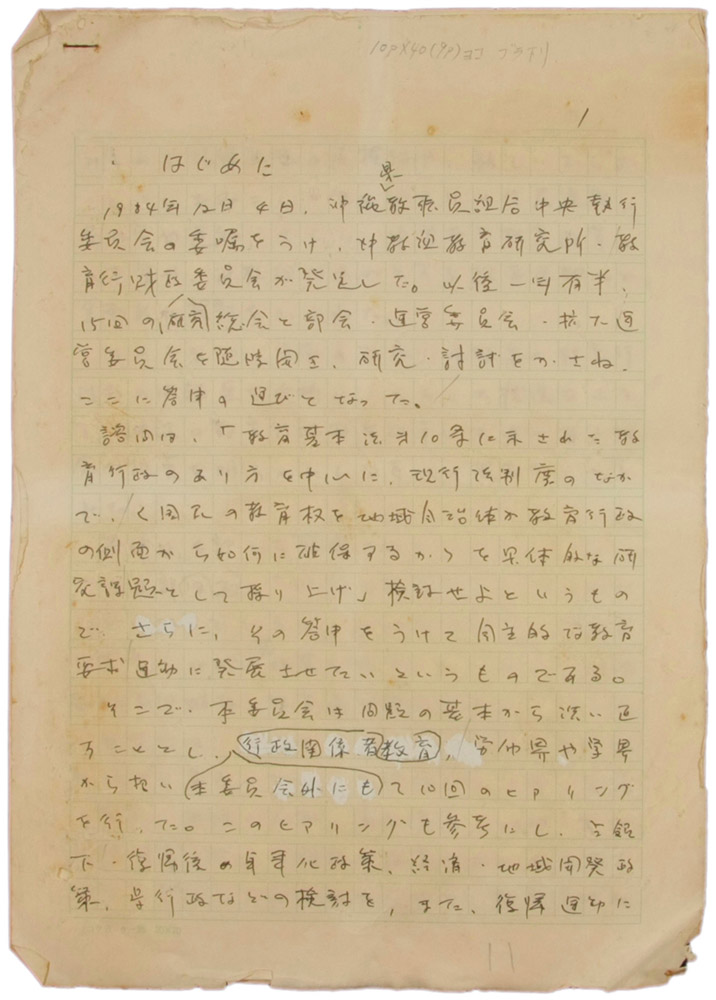 10P×40(9P)ヨコ
1
はじめに
県
1984年12月4日、沖縄教職員組合中央執行
委員会の委嘱をうけ、沖教組教育研究所・教
育行財政委員会が発足した。以後一年有半、
15回の研究総会と部会・運営委員会・拡大運
営委員会を随時開き、研究・討議をかさね、
ここに答申の運びとなった。
諮問は、「教育基本法第10条に示された教
育行政のあり方を中心に、現行法制度のなか
で、〈国民の教育権を地域自治体が教育行政
の側面から如何に確保するか〉を具体的な研
究課題として採り上げ」検討せよというもの
で さらに、その答申をうけて自主的な教育
要求運動に発展させたいというものである。
そこで、本委員会は問題の基本から洗い直
すこととし、行政関係者教育、労働界や学界
から招い本委員会外にもて10回のヒアリング
を行った。このヒアリングも参考にし、占領
下・復帰後の自軍化政策、経済・地域開発政
策、学行政などの検討を、また、復帰運動に
11